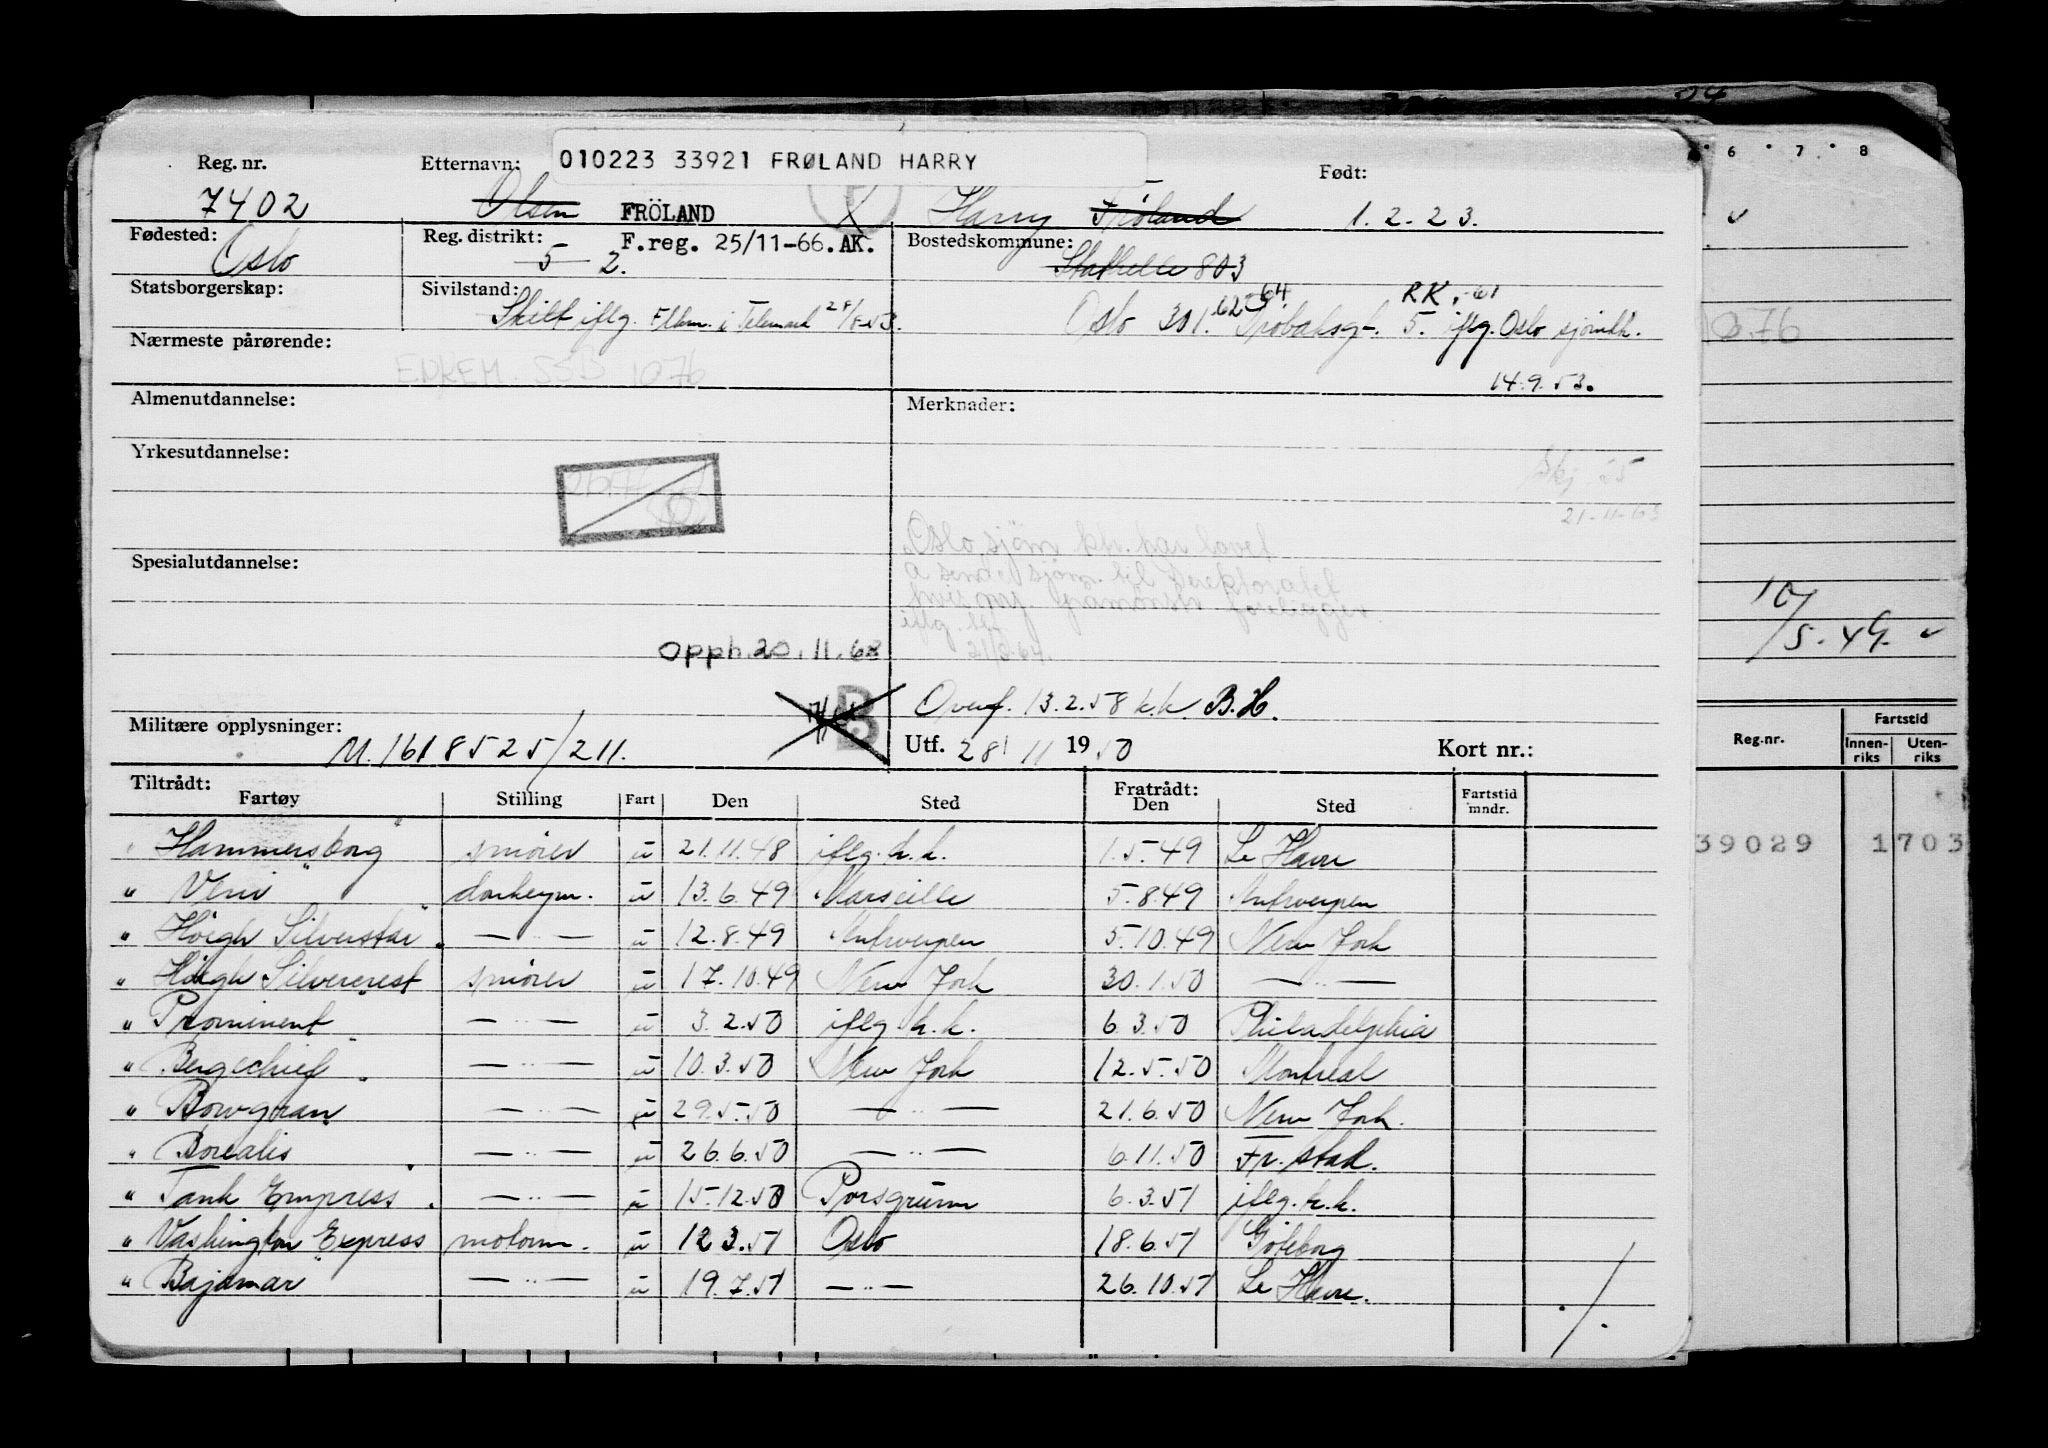 04
Reg. nr. Etternavn: 010223 33921 FRØLAND HARRY Født:
7402 Olsen FRÖLAND Harry Fröland 1.2-23.
Fødested: Reg. distrikt: F.reg. 25/11-66. AK. Bostedskommune:
Oslo 5 2. Stathelle 803
Statsborgerskap: Sivilstand: 64. RK. -61
Skilt iflg. i Telemark Oslo 301. 5. iflg. Oslo sjömk.
Nærmeste pårørende:
SSB 1076 14.9.53.
Almenutdannelse: Merknader:
Yrkesutdannelse:
Skj. 25
21-11-63
Oslo sjöm kt. har lovet
å sende sjöm. til direktoratet
hvis ny foreligger.
iflg. tlf
Spesialutdannelse:
Opph. 20.11.68
Overf. 13.2.58 k.k. B.H.
Militære opplysninger: M. 1618525/211. B Utf. 28/11 1950 Kort nr.:
Tiltrådt: Fratrådt:
Fartøy Stilling Fart Den Sted Den Sted Fartstid mndr.
" Hammersborg " smörer u 21.11.48 iflg. h.k. 1.5.49 Le Havre
" Veni " donkeym. u 13.6.49 Marseille 5.8.49 Antwerpen
" Höegh Silverstar " — " — u 12.8.49 Antwerpen 5.10.49 New York
" Höegh Silvercrest smörer u 17.10.49 New York 30.1.50 — " —
" Prominent " — " — u 3.2.50 iflg. h.k. 6.3.50 Philadelphia
" Bergechief " — " — u 10.3.50 New York 12.5.50 Montreal
" Bowgran — " — u 29.5.50 — " — 21.6.50 New York.
" Borealis " — " — u 26.6.50 — " — 6.11.50 Fr. stad.
" Tank Empress " — " — u 15.12.50 Porsgrunn 6.3.51 iflg. h.k.
" Washington Express motorm. u 12.3.51 Oslo 18.6.51 Göteborg
" Bajamar " — " — u 19.7.51 — " — 26.10.51 Le Havre.
./.
6 7 8
1076
10/5-49.
Reg.nr. Fartstid
Innen-riks Uten-riks
39029 1703